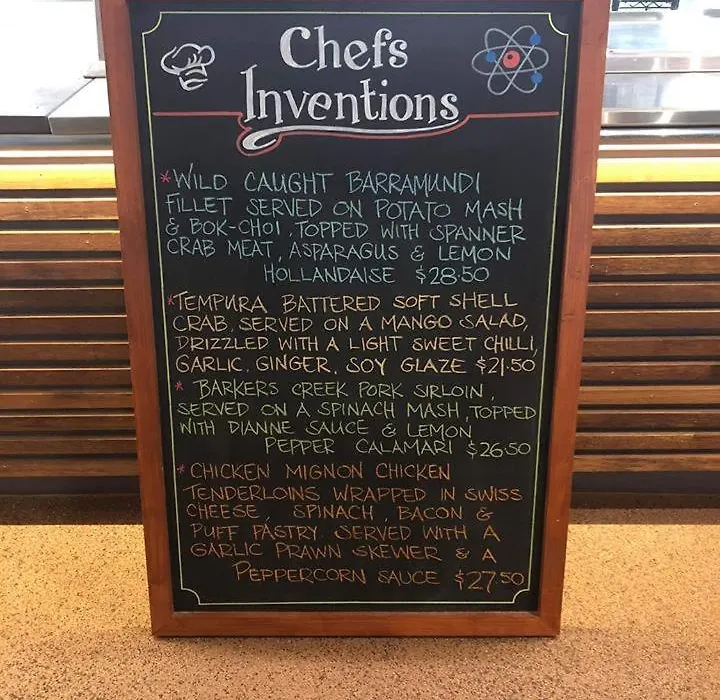 Chefs
Inventions
*WILD CAUGHT BARRAMUNDI
FILLET SERVED ON POTATO MASH
& BOK-CHOI, TOPPED WITH SPANNER
CRAB MEAT, ASPARAGUS & LEMON
HOLLANDAISE $28.50
*TEMPURA BATTERED SOFT SHELL
CRAB, SERVED ON A MANGO SALAD,
DRIZZLED WITH A LIGHT SWEET CHILLI,
GARLIC, GINGER, SOY GLAZE $21.50
* BARKERS CREEK PORK SIRLOIN,
SERVED ON A SPINACH MASH, TOPPED
WITH DIANNE SAUCE & LEMON
PEPPER CALAMARI $26.50
*CHICKEN MIGNON CHICKEN
TENDERLOINS WRAPPED IN SWISS
CHEESE, SPINACH, BACON &
PUFF PASTRY. SERVED WITH A
GARLIC PRAWN SKEWER & A
PEPPERCORN SAUCE $27.50